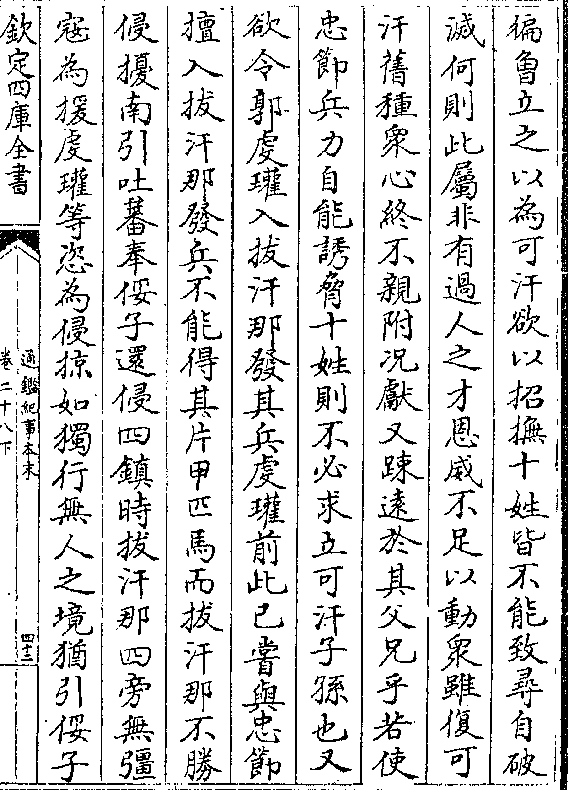 徧魯立之以為可汗欲以招撫十姓皆不能致尋自破
滅何則此屬非有過人之才恩威不足以動衆雖復可
汗舊種衆心終不親附况獻又踈遠於其父兄乎若使
忠節兵力自能誘脅十姓則不必求立可汗子孫也又
欲令郭䖍瓘入拔汗那發其兵䖍瓘前此已嘗與忠節
擅入拔汗那發兵不能得其片甲匹馬而拔汗那不勝
侵擾南引吐蕃奉俀子還侵四鎮時拔汗那四旁無彊
寇為援䖍瓘等恣為侵掠如獨行無人之境猶引俀子
欽定四庫全書
通鑑紀事本末
卷二十八下
四十二